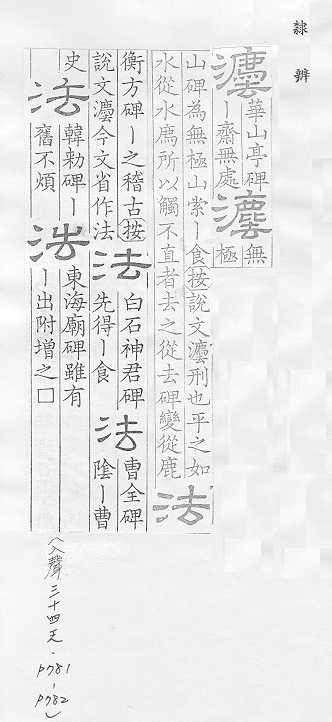 隸辨
灋 華山亭碑 灋 無
｜齋無處 極
山碑為無極山祟｜食按說文灋刑也平之如
水從水廌所以觸不直者去之從去碑變從鹿 法
衡方碑｜之稽古按 法 白石神君碑 法 曹全碑
說文灋今文省作法 先得｜食 陰｜曹
史 法 韓勑碑｜ 法 東海廟碑雖有
舊不煩 ｜出附增之□
(入聲三十四乏・P781-P782)